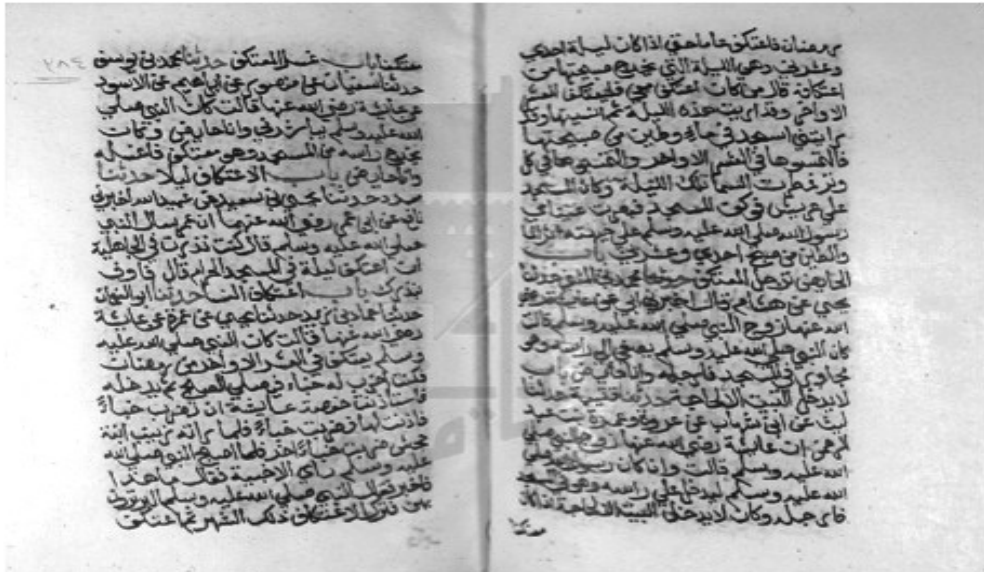 رمضان فاعتكف عاما حتى اذا كان ليلة احدي
وعشرين وهي الليلة التي يخرج من صبيحتها من
اعتكافه قال من كان اعتكف معي فليعتكف العشر
الاواخر وقد اريت هذه الليلة ثم انسيتها وقد
رايتني اسجد في ماء وطين من صبيحتها
فالتمسوها في العشر الاواخر والتمسوها في كل
وتر فمطرت السما تلك الليلة وكان المسجد
علي عريش فوكف المسجد فبصرت عيناي
رسول الله صلى الله عليه وسلم علي جبهته اثر الما
والطين من صبح احدي وعشرين باب
الحايض ترجل المعتكف حدثنا محمد بن المثنى حدثنا
يحيي عن هشام قال اخبرني ابي عن عايشة رضي
الله عنها زوج النبي صلى الله عليه وسلم قالت
كان النبي صلى الله عليه وسلم يصغي الي راسه وهو
مجاور في المسجد فارجله وانا حايض باب
لا يدخل البيت الا لحاجة حدثنا قتيبة حدثنا
ليث عن ابن شهاب عن عروة وعمرة بنت عبد
الرحمن ان عايشة رضي الله عنها زوج النبي صلى
الله عليه وسلم قالت وان كان رسول الله صلى
الله عليه وسلم ليدخل علي راسه وهو في المسجد
فارجله وكان لا يدخل البيت الا لحاجة اذا كان
معتكفا
معتكفا باب غسل المعتكف حدثنا محمد بن يوسف
٢٨٤
حدثنا سفيان عن منصور عن ابراهيم عن الاسود
عن عايشة رضي الله عنها قالت كان النبي صلى
الله عليه وسلم يباشرني وانا حايض وكان
يخرج راسه من المسجد وهو معتكف فاغسله
وانا حايض باب الاعتكاف ليلا حدثنا
مسدد حدثنا يحيى بن سعيد عن عبيد الله اخبرني
نافع عن ابن عمر رضي الله عنهما ان عمر سال النبي
صلى الله عليه وسلم قال كنت نذرت في الجاهلية
ان اعتكف ليلة في المسجد الحرام قال فاوف
بنذرك باب اعتكاف النسا حدثنا ابو النعمان
حدثنا حماد بن زيد حدثنا يحيي عن عمرة عن عايشة
رضي الله عنها قالت كان النبي صلى الله عليه
وسلم يعتكف في العشر الاواخر من رمضان
فكنت اضرب له خباء فيصلي الصبح ثم يدخله
فاستاذنت حفصة عايشة ان تضرب خباءً
فاذنت لها فضربت خباءً فلما راته زينب ابنة
جحش ضربت خباءً اخر فلما اصبح النبي صلى الله
عليه وسلم راي الاخبية فقال ما هذا
فاخبر فقال النبي صلى الله عليه وسلم البر ترون
بهن فترك الاعتكاف ذلك الشهر ثم اعتكف